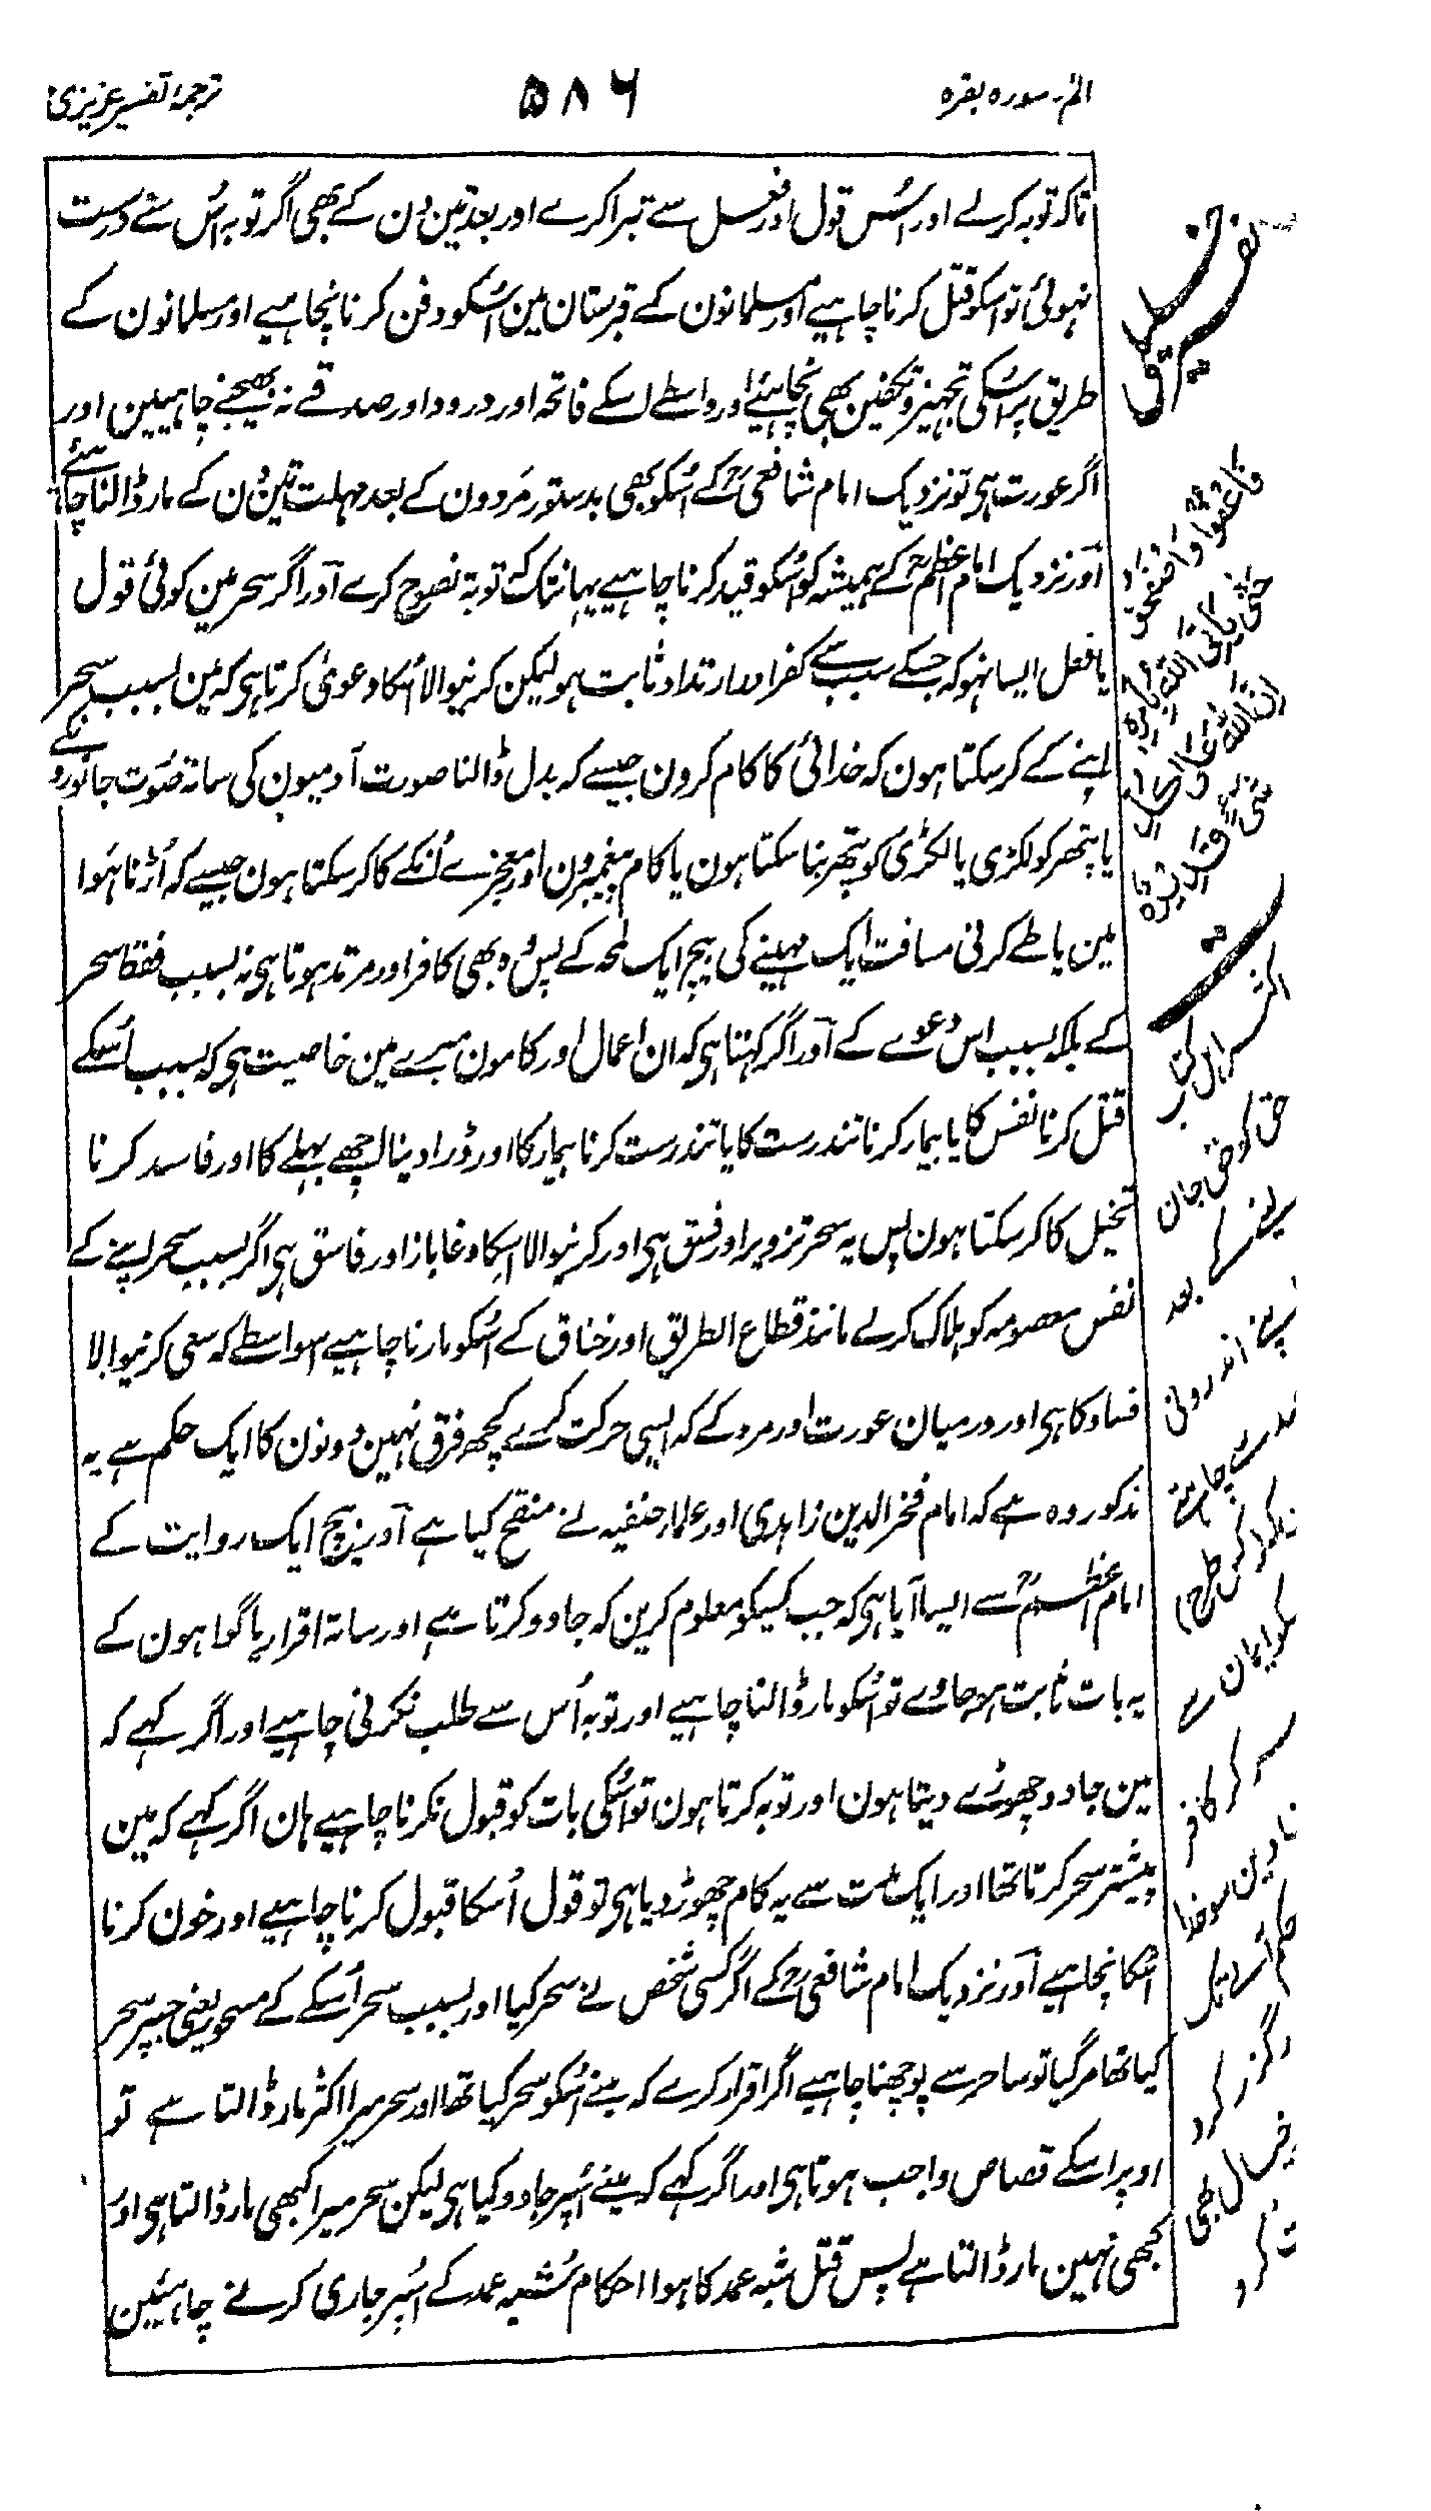 الم۔سورہ بقرہ
۵۸۶
ترجمہ تفسیر عزیزی
تاکہ توبہ کرلے اور اُس قول اور فعل سے تبرا کرے اور بعد تین دن کے بھی اگر توبہ اُس سے درست
نہوئی تو اسکو قتل کرنا چاہیے اور مسلمانون کے قبرستان مین اُسکو دفن کرنا نچاہیے اور مسلمانون کے
طریق پر اُسکی تجہیز و تکفین بھی نچاہئے اور واسطے اسکے فاتحہ اور درود اور صدقے نہ بھیجنے چاہییین اور
اگر عورت ہی تو نزدیک امام شافعیؒ کے اُسکو بھی بدستور مَردون کے بعد مہلت تین دن کے مار ڈالنا چاہئے
اَور نزدیک امام اعظمؒ کے ہمیشہ کو اُسکو قید کرنا چاہیے یہانتک کہ توبۂ نصوح کرے اَور اگر سحر مین کوئی قول
یا فعل ایسا نہو کہ جسکے سبب سے کفر اور ارتداد ثابت ہو لیکن کرنیوالا اُسکا دعویٰ کرتا ہی کہ مین بسبب سحر
اپنے کے کر سکتا ہون کہ خدائی کا کام کرون جیسے کہ بدل ڈالنا صورت آدمیون کی ساتھ صورت جانورون کے
یا پتھر کو لکڑی یا لکڑی کو پتھر بنا سکتا ہون یا کام پیغمبرون اور معجزے اُنکے کا کر سکتا ہون جیسے کہ اُڑنا ہَوا
مین یا طے کرنی مسافت ایک مہینے کی بیچ ایک لمحہ کے پس وُہ بھی کافر اور مرتد ہوتا ہی نہ بسبب فقط سحر
کے بلکہ بسبب اس دعوے کے اَور اگر کہتا ہی کہ ان اعمال اور کامون میرے مین خاصیت ہی کہ بسبب اُسکے
قتل کرنا نفس کا یا بیمار کرنا تندرست کا یا تندرست کرنا بیمار کا اور ڈرا دینا اچھے بھلے کا اور فاسد کرنا
تخیل کا کر سکتا ہون پس یہ سحر تزویر اور فسق ہی اور کرنیوالا اسکا دغاباز اور فاسق ہی اگر بسبب سحر اپنے کے
نفس معصومہ کو ہلاک کرلے مانند قطاع الطریق اور خناق کے اُسکو مارنا چاہیے اسواسطے کہ سعی کرنیوالا
فساد کا ہی اور درمیان عورت اور مرد کے کہ ایسی حرکت کرے کچھ فرق نہین دونون کا ایک حکم ہے یہ
مذکور وہ ہے کہ امام فخر الدین زاہدی اور علماء حنفیہ نے منقح کیا ہے اَور بیچ ایک روایت کے
امام اعظمؒ سے ایسا آیا ہی کہ جب کسیکو معلوم کرین کہ جادو کرتا ہے اور ساتھ اقرار یا گواہون کے
یہ بات ثابت ہو جاوے تو اُسکو مار ڈالنا چاہیے اور توبہ اُس سے طلب نکرنی چاہیے اور اگر کہے کہ
مین جادو چھوڑے دیتا ہون اور توبہ کرتا ہون تو اُسکی بات کو قبول نکرنا چاہیے ہان اگر کہے کہ مین
پیشتر سحر کرتا تھا اور ایک مدت سے یہ کام چھوڑ دیا ہی تو قول اُسکا قبول کرنا چاہیے اور خون کرنا
اُسکا نچاہیے اَور نزدیک امام شافعیؒ کے اگر کسی شخص نے سحر کیا اور بسبب سحر اُسکے کے مسحور یعنی جسپر سحر
کیا تھا مر گیا تو ساحر سے پوچھنا چاہیے اگر اقرار کرے کہ مینے اُسکو سحر کیا تھا اور سحر میرا اکثر مار ڈالتا ہے تو
اوپر اسکے قصاص واجب ہوتا ہی اور اگر کہے کہ مینے اُسپر جادو کیا ہی لیکن سحر میرا کبھی مار ڈالتا ہی اور
کبھی نہین مار ڈالتا ہے پس قتل شبہ عمد کا ہوا احکام شبہ عمد کے اُسپر جاری کرنے چاہئین
فَاعْفُوا وَاصْفَحُوا
حَتّٰى يَأْتِيَ اللّٰهُ بِأَمْرِهِ
إِنَّ اللّٰهَ عَلٰى كُلِّ
شَيْءٍ قَدِيرٌ